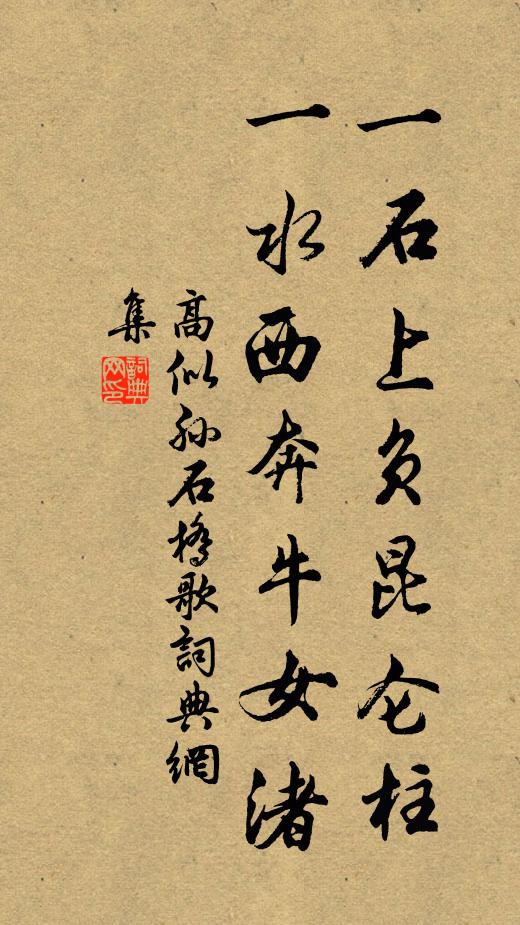 一石上负昆仑柱
一水西奔牛女渚
高似孙石橋歌詞典網
集
詞典網印